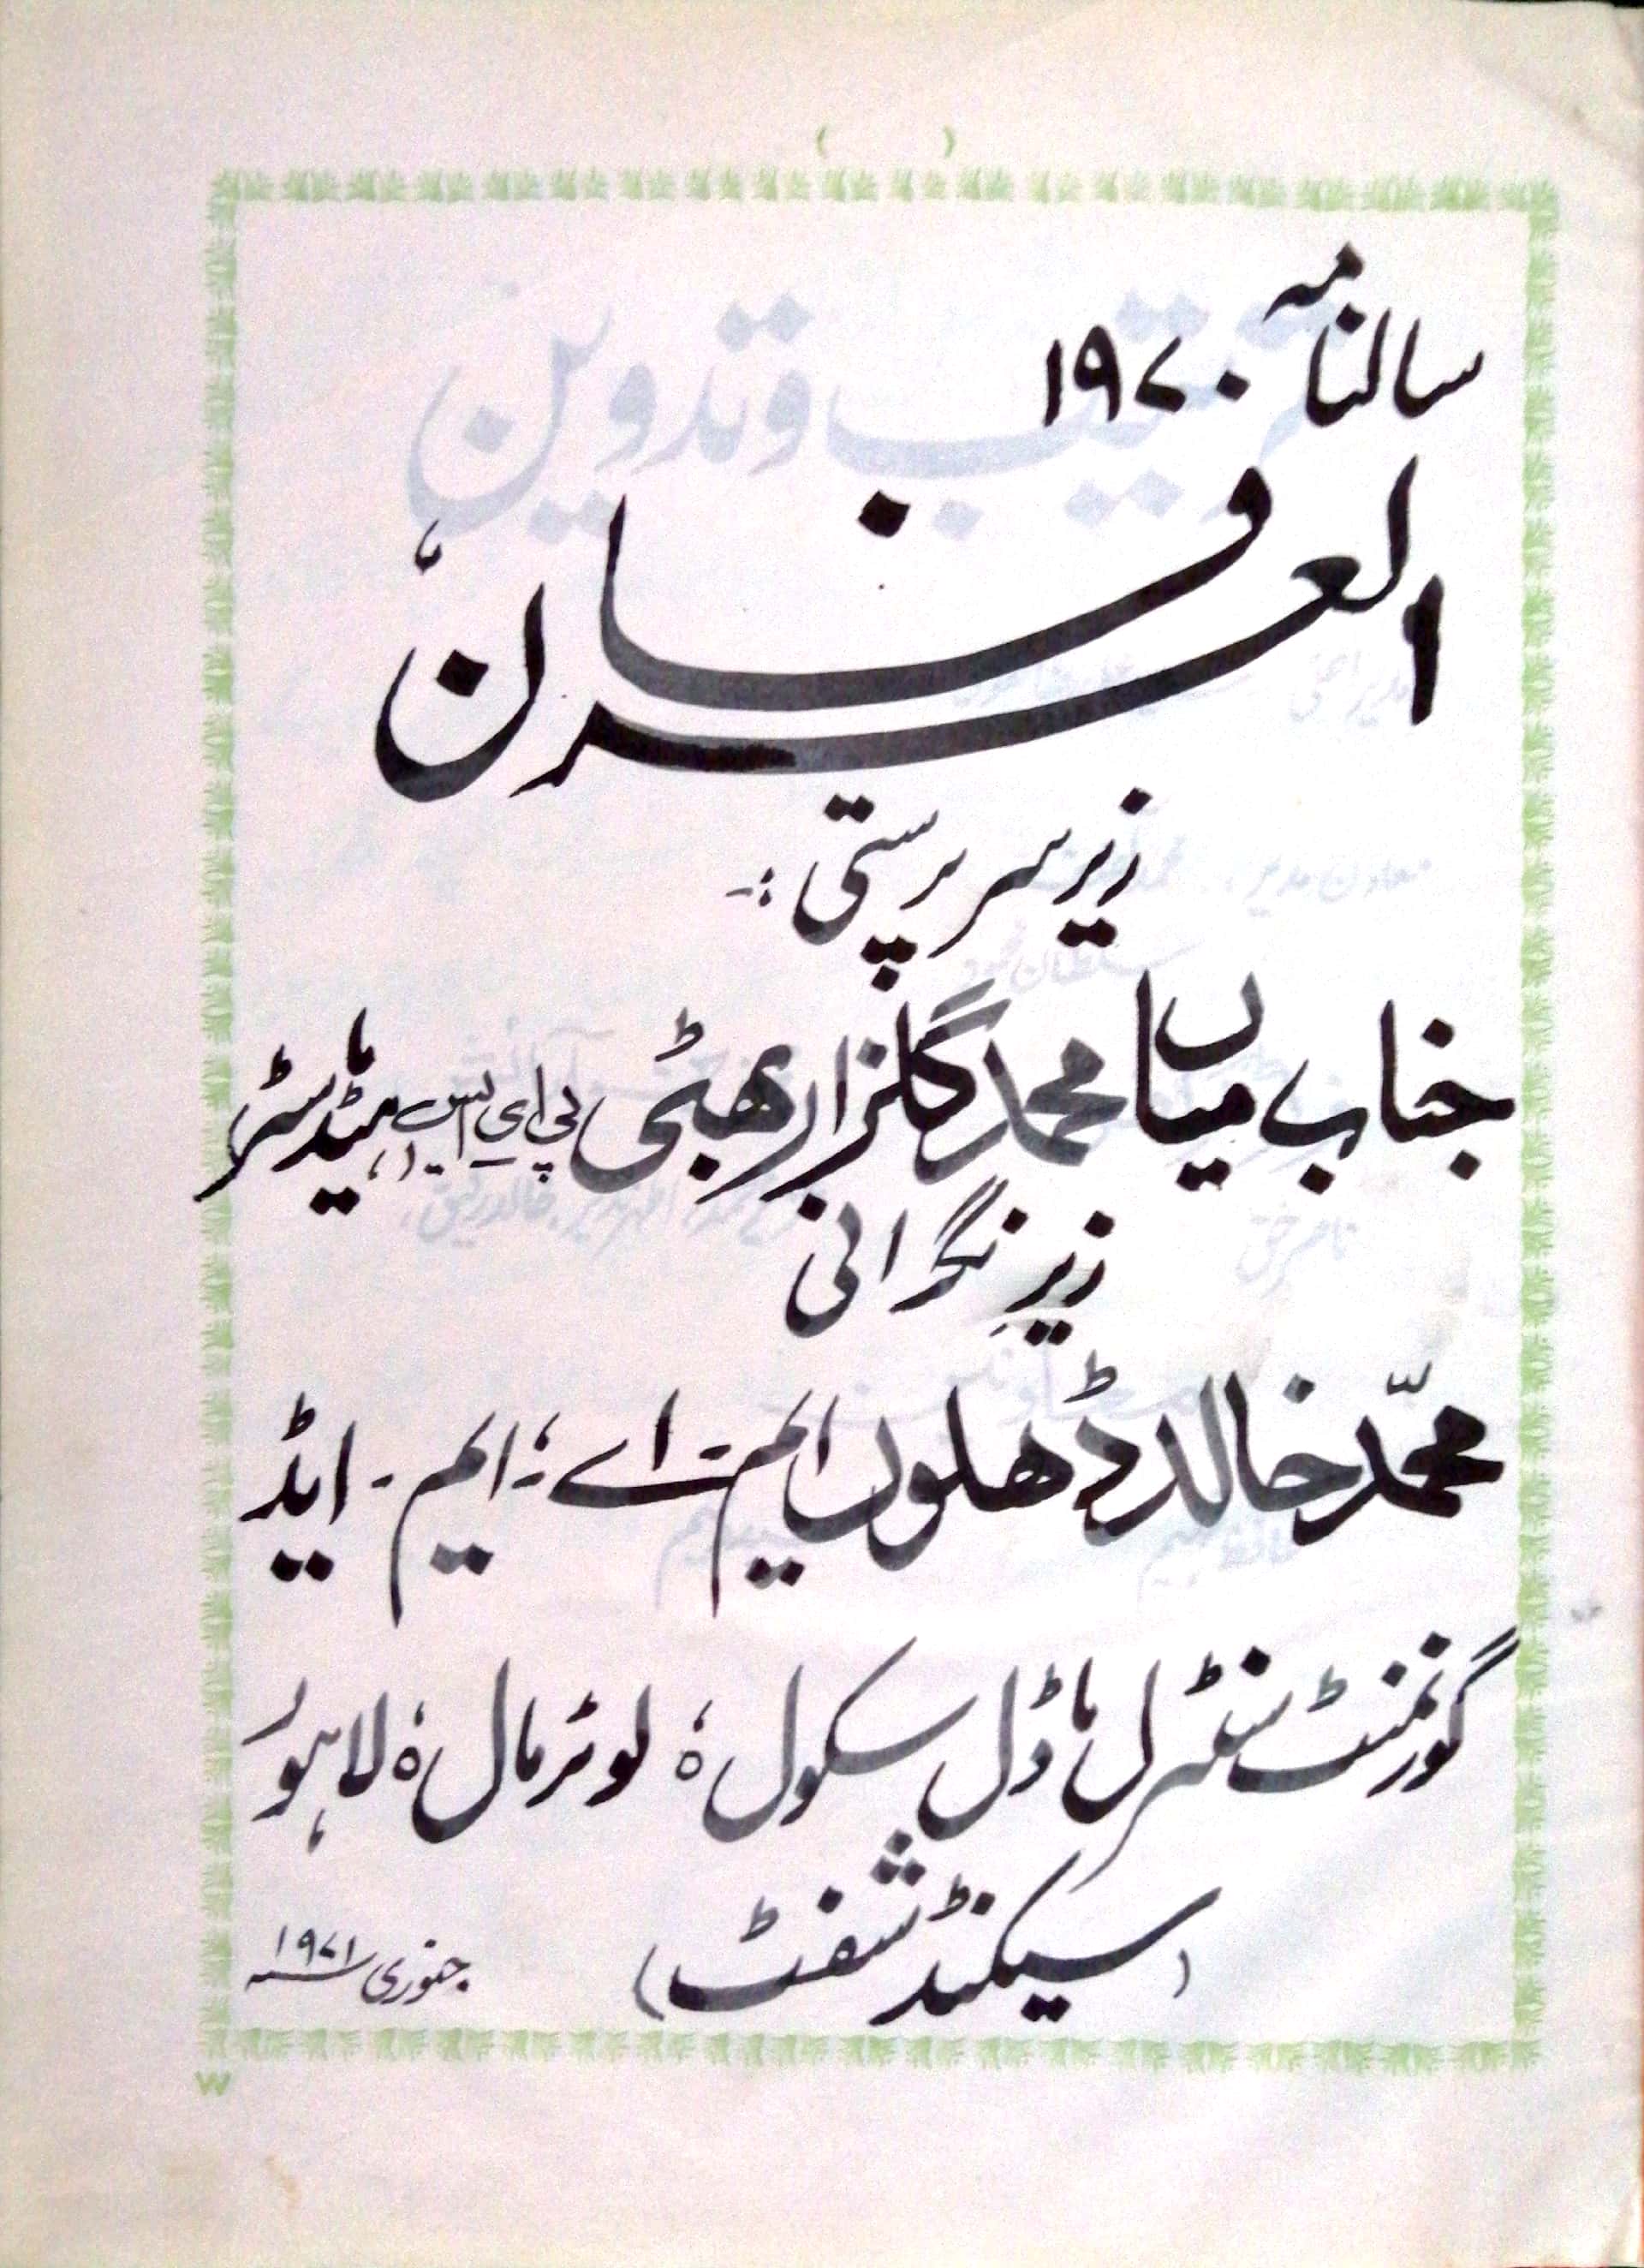 سالنامہ ۱۹۷۰
العرفان
زیر سرپرستی :-
جناب میاں محمد گلزار بھٹی پی ای ایس (۱)، ہیڈ ماسٹر
زیر نگرانی
محمّد خالد ڈھلوں ایم- اے ؛ ایم - ایڈ
گورنمنٹ سنٹرل ماڈل سکول ، لوئر مال ، لاہور
(سیکنڈ شفٹ)
جنوری ۱۹۷۱